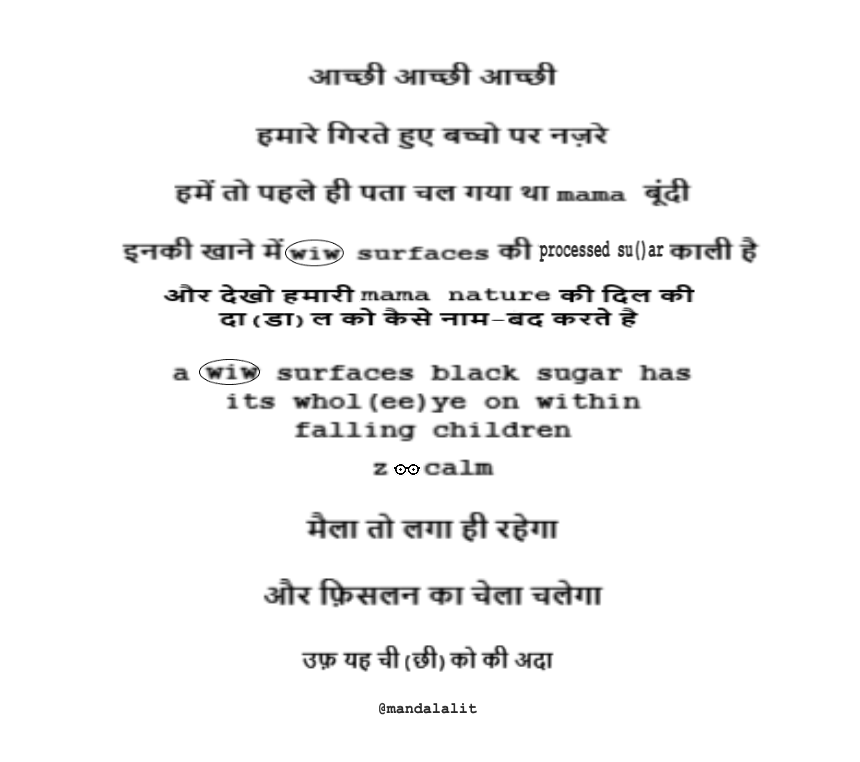 आच्छी आच्छी आच्छी
हमारे गिरते हुए बच्चो पर नज़रे
हमें तो पहले ही पता चल गया था mama बूंदी
इनकी खाने में wiw surfaces की processed su()ar काली है
और देखो हमारी mama nature की दिल की
दा(डा)ल को कैसे नाम-बद करते है
a wiw surfaces black sugar has
its whol(ee)ye on within
falling children
z calm
मैला तो लगा ही रहेगा
और फ़िसलन का चेला चलेगा
उफ़ यह ची(छी)को की अदा
@mandalalit